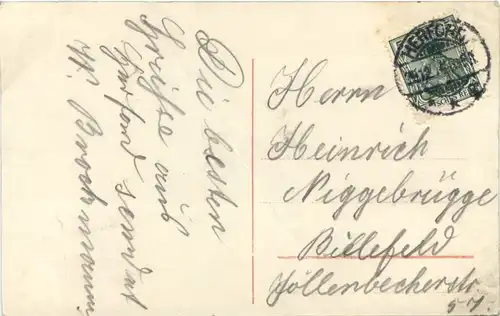 Die besten
Grüße aus
Herford sendet
W. Brockmann
HERFORD
Herrn
Heinrich
Niggebrügge
Billefeld
Jöllenbecherstr.
57.